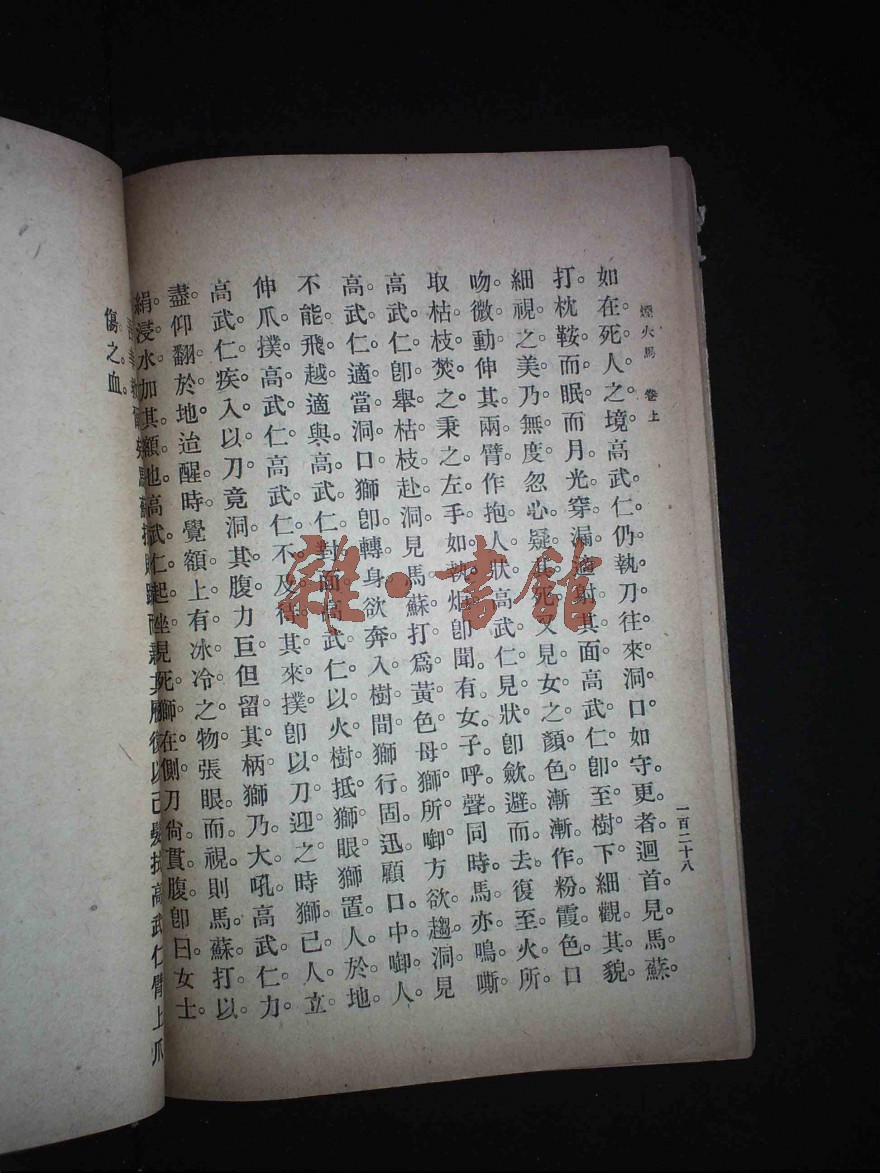 煙火馬 卷上
一百二十八
如在死人之境。高武仁仍執刀往來洞口。如守更者。迴首見馬蘇。
打枕鞍而眠。而月光穿漏。適射其面。高武仁卽至樹下。細觀其貌。
細視之。美乃無度。忽心疑其死。又見女之顏色漸漸作粉霞色。口
吻微動。伸其兩臂。作抱人狀。高武仁見狀。卽歛避而去。復至火所。
取枯枝焚之。秉之左手。如執炬。卽聞有女子呼聲。同時馬亦鳴嘶。
高武仁卽舉枯枝赴洞。見馬蘇打爲黃色母獅所啣。方欲趨洞。見
高武仁適當洞口。獅卽轉身欲奔入樹間。獅行固迅。顧口中啣人。
不能飛越。適與高武仁對面。高武仁以火樹抵獅眼。獅置人於地。
伸爪撲高武仁。高武仁不及待其來撲。卽以刀迎之。時獅已人立。
高武仁疾入以刀。竟洞其腹。力巨但留其柄。獅乃大吼。高武仁力
盡。仰翻於地。迨醒時。覺額上有冰冷之物。張眼而視。則馬蘇打以
絹浸水加其額也。高武仁起坐。見死獅在側。刀尙貫腹。卽曰女士。
以己髮拭高武仁臂上爪
傷之血。
雜·書館